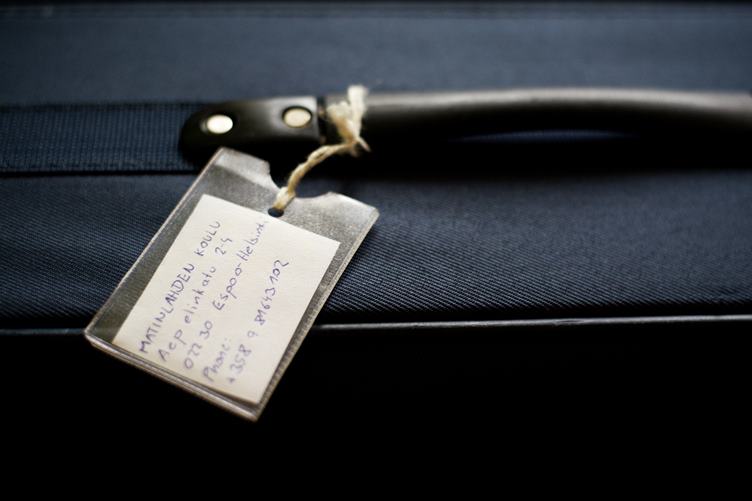 MATINLAHDEN KOULU
Aapelinkatu 2-4
02230 Espoo-Helsinki
Phone:
+358 9 81643102